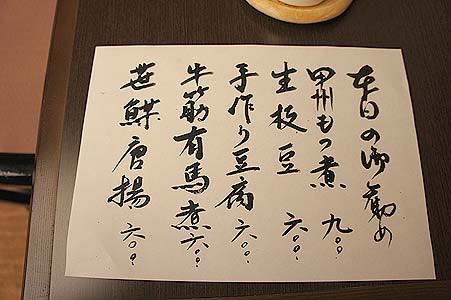 本日の御薦め
甲州もつ煮 九〇〇
生枝豆 六〇〇
手作り豆腐 六〇〇
牛筋有馬煮 六〇〇
笹鰈唐揚 六〇〇